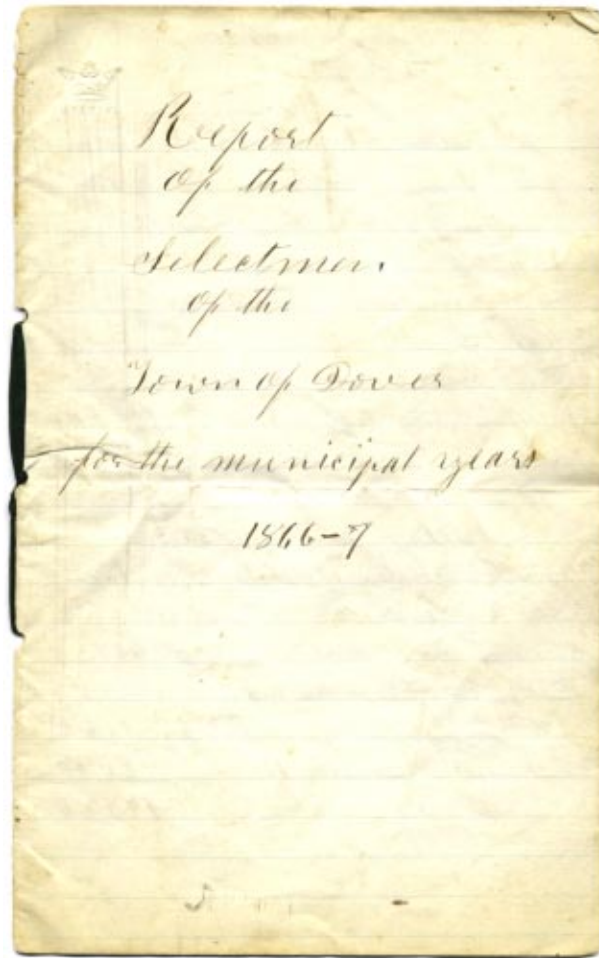 Report
of the
Selectmen
of the
Town of Dover
for the municipal years
1866-7